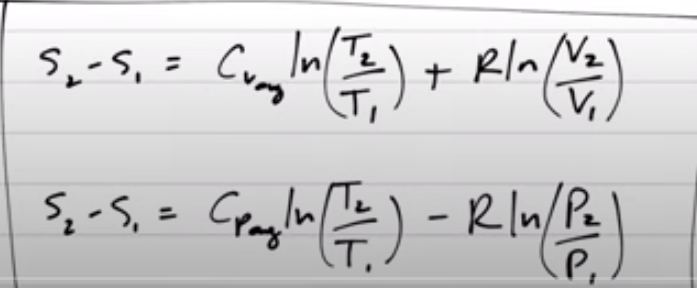 S₂ - S₁ = C_v avg ln(T₂/T₁) + R ln(V₂/V₁)
S₂ - S₁ = C_p avg ln(T₂/T₁) - R ln(P₂/P₁)